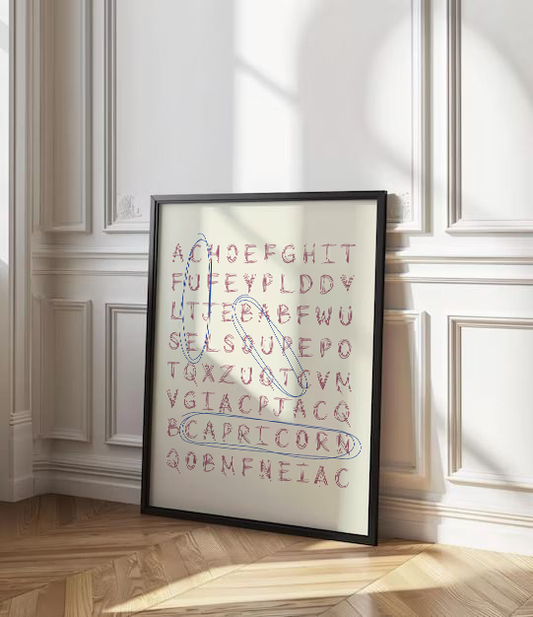 ACHJEFGHIT
FUFEYPLDDY
LTJEBABFWU
SELSQUREPO
TQXZUQTCVM
VGIACPJACQ
BCAPRICORN
QOBMFNEIAC